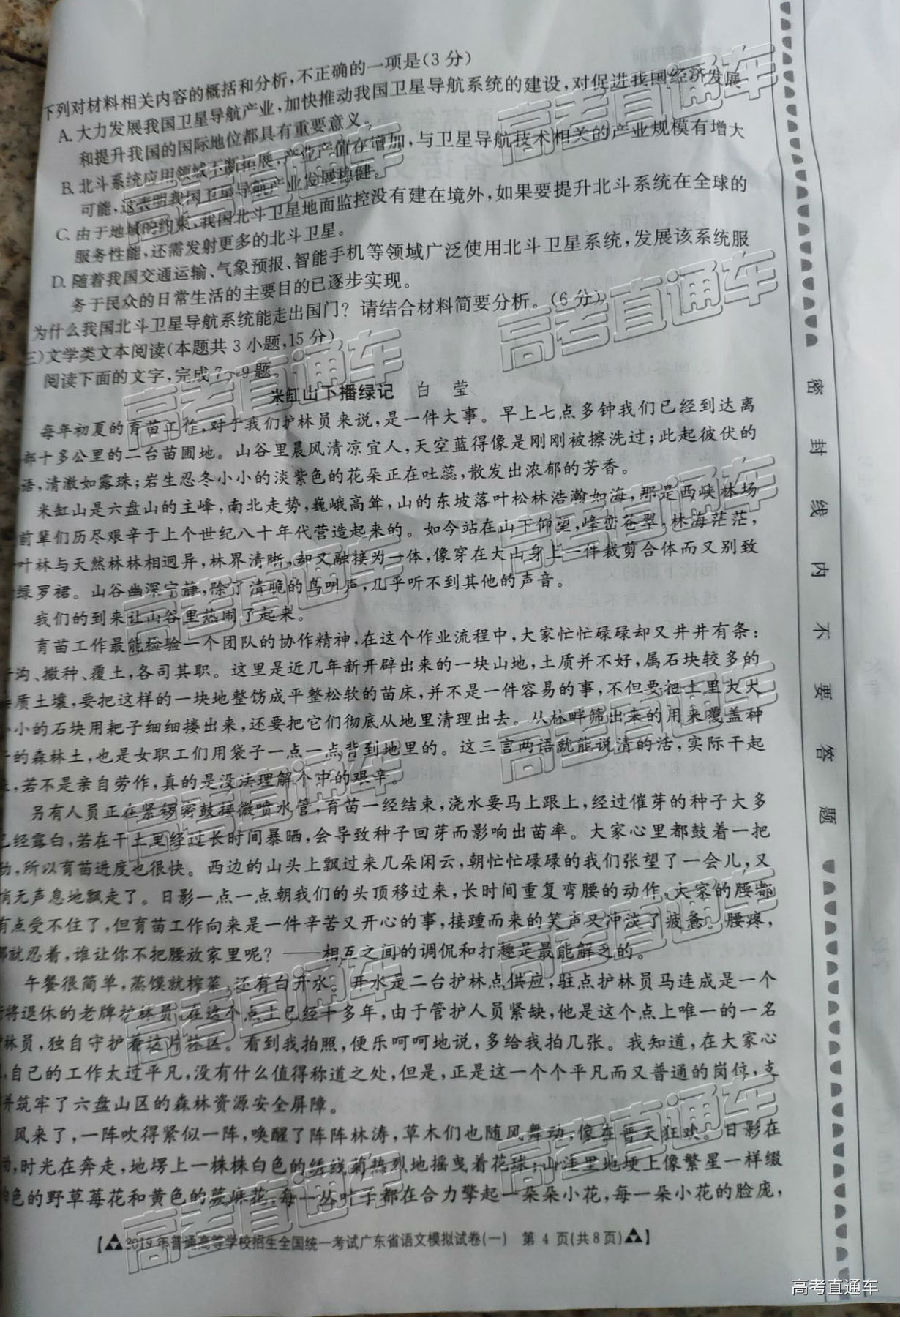 下列对材料相关内容的概括和分析,不正确的一项是(3分)
A.大力发展我国卫星导航产业,加快推动我国卫星导航系统的建设,对促进我国经济发展
和提升我国的国际地位都具有重要意义。
B.北斗系统应用领域不断拓展,产业产值在增加,与卫星导航技术相关的产业规模有增大
可能,这表明我国卫星导航产业发展稳健。
C.由于地域的约束,我国北斗卫星地面监控没有建在境外,如果要提升北斗系统在全球的
服务性能,还需发射更多的北斗卫星。
D.随着我国交通运输、气象预报、智能手机等领域广泛使用北斗卫星系统,发展该系统服
务于民众的日常生活的主要目的已逐步实现。
为什么我国北斗卫星导航系统能走出国门?请结合材料简要分析。(6分)
三)文学类文本阅读(本题共3小题,15分)
阅读下面的文字,完成7~9题。
米缸山下播绿记 白莹
每年初夏的育苗工作,对于我们护林员来说,是一件大事。早上七点多钟我们已经到达离
部十多公里的二台苗圃地。山谷里晨风清凉宜人,天空蓝得像是刚刚被擦洗过;此起彼伏的
语,清澈如露珠;岩生忍冬小小的淡紫色的花朵正在吐蕊,散发出浓郁的芳香。
米缸山是六盘山的主峰,南北走势,巍峨高耸,山的东坡落叶松林浩瀚如海,那是西峡林场
前辈们历尽艰辛于上个世纪八十年代营造起来的。如今站在山下仰望,峰峦苍翠,林海茫茫,
叶林与天然林林相迥异,林界清晰,却又融接为一体,像穿在大山身上一件裁剪合体而又别致
绿罗裙。山谷幽深宁静,除了清脆的鸟叫声,几乎听不到其他的声音。
我们的到来让山谷里热闹了起来。
育苗工作最能检验一个团队的协作精神,在这个作业流程中,大家忙忙碌碌却又井井有条:
沟、撒种、覆土,各司其职。这里是近几年新开辟出来的一块山地,土质并不好,属石块较多的
质土壤,要把这样的一块地整饬成平整松软的苗床,并不是一件容易的事,不但要把土里大大
小的石块用耙子细细搂出来,还要把它们彻底从地里清理出去。从林畔筛出来的用来覆盖种
的森林土,也是女职工们用袋子一点一点背到地里的。这三言两语就能说清的活,实际干起
,若不是亲自劳作,真的是没法理解个中的艰辛。
另有人员正在紧锣密鼓接微喷水管,育苗一经结束,浇水要马上跟上,经过催芽的种子大多
已经露白,若在干土里经过长时间暴晒,会导致种子回芽而影响出苗率。大家心里都鼓着一把
劲,所以育苗进度也很快。西边的山头上飘过来几朵闲云,朝忙忙碌碌的我们张望了一会儿,又
悄无声息地飘走了。日影一点一点朝我们的头顶移过来,长时间重复弯腰的动作,大家的腰都
有点受不住了,但育苗工作向来是一件辛苦又开心的事,接踵而来的笑声又冲淡了疲惫。腰疼,
那就忍着,谁让你不把腰放家里呢?——相互之间的调侃和打趣是最能解乏的。
午餐很简单,蒸馍就榨菜,还有白开水。开水是二台护林点供应,驻点护林员马连成是一个
将退休的老牌护林员,在这个点上已经干多年,由于管护人员紧缺,他是这个点上唯一的一名
林员,独自守护着这片林区。看到我拍照,便乐呵呵地说,多给我拍几张。我知道,在大家心
,自己的工作太过平凡,没有什么值得称道之处,但是,正是这一个个平凡而又普通的岗位,支
并筑牢了六盘山区的森林资源安全屏障。
风来了,一阵吹得紧似一阵,唤醒了阵阵林涛,草木们也随风舞动,像在普天狂欢。日影在
,时光在奔走,地塄上一株株白色的绣线菊热烈地摇曳着花球;山洼里地埂上像繁星一样缀
色的野草莓花和黄色的蕨麻花,每一丛叶子都在合力擎起一朵朵小花,每一朵小花的脸庞,
【2019年普通高等学校招生全国统一考试广东省语文模拟试卷(一) 第4页(共8页)】
密封线内不要答题
高考直通车
高考直通车